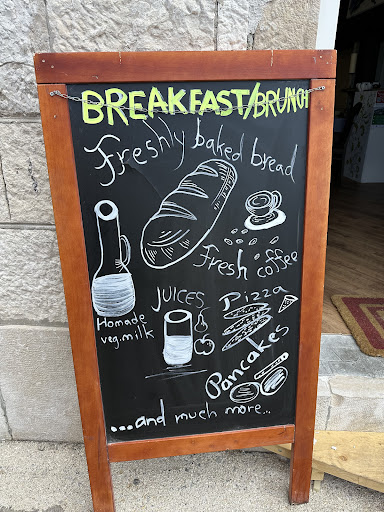 BREAKFAST/BRUNCH
Freshly baked bread
Fresh coffee
Homade
veg.milk
JUICES
Pizza
Pancakes
...and much more...